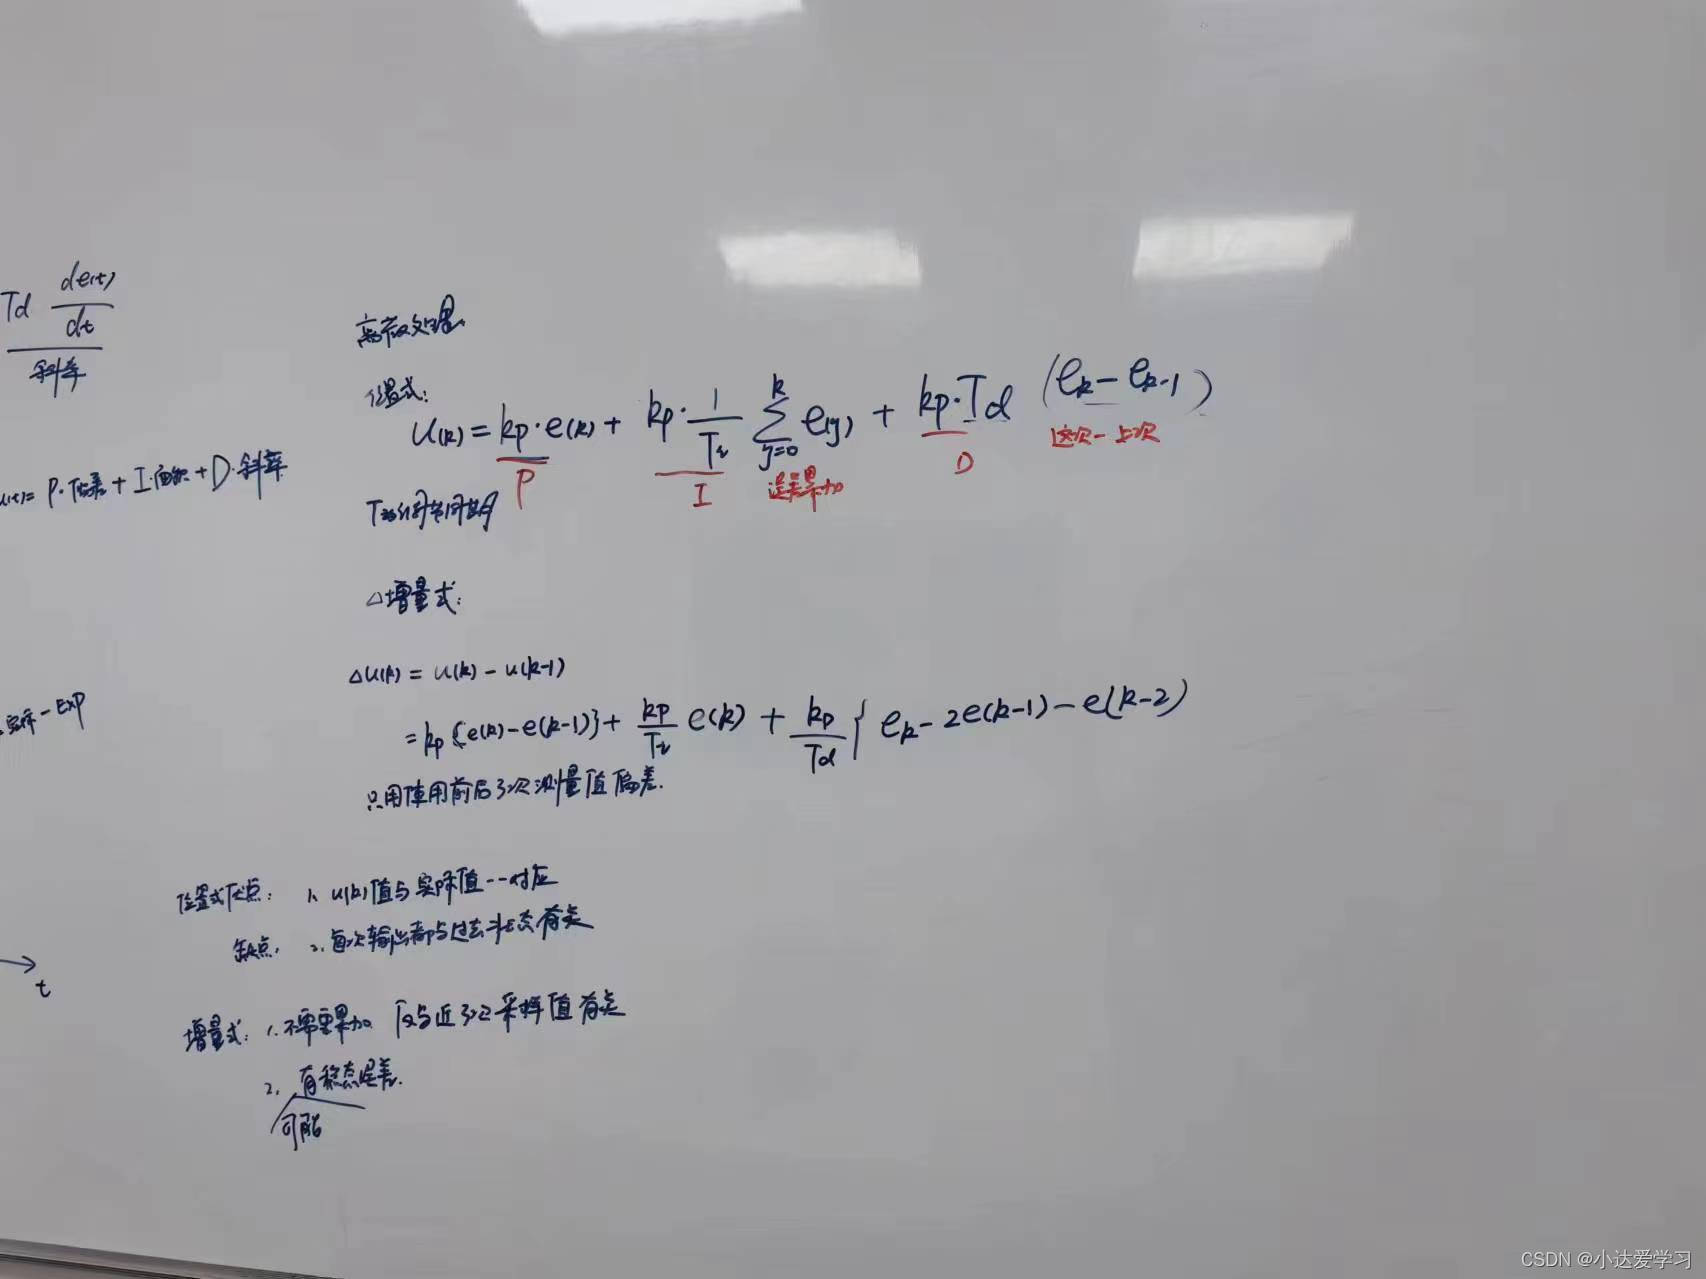 Td de(t)/dt
斜率
离散处理
位置式:
U(k) = kp·e(k) + kp·1/Ti ∑_{j=0}^{k} e(j) + kp·Td (e_k - e_{k-1})
P I 误差累加 D 这次-上次
u(t) = P· + I·面积 + D·斜率
T为
△增量式:
△u(k) = u(k) - u(k-1)
= kp{e(k)-e(k-1)} + kp/Ti e(k) + kp/Td { e_k - 2e(k-1) - e(k-2)
实际-Exp
只用使用前后3次测量值偏差.
位置式优点: 1. u(k)值与实际值一一对应
缺点, 2. 每次输出都与过去状态有关
t
增量式: 1. 不需要累加 仅与近3次采样值有关
2. 有稳态误差.
可能
CSDN @小达爱学习